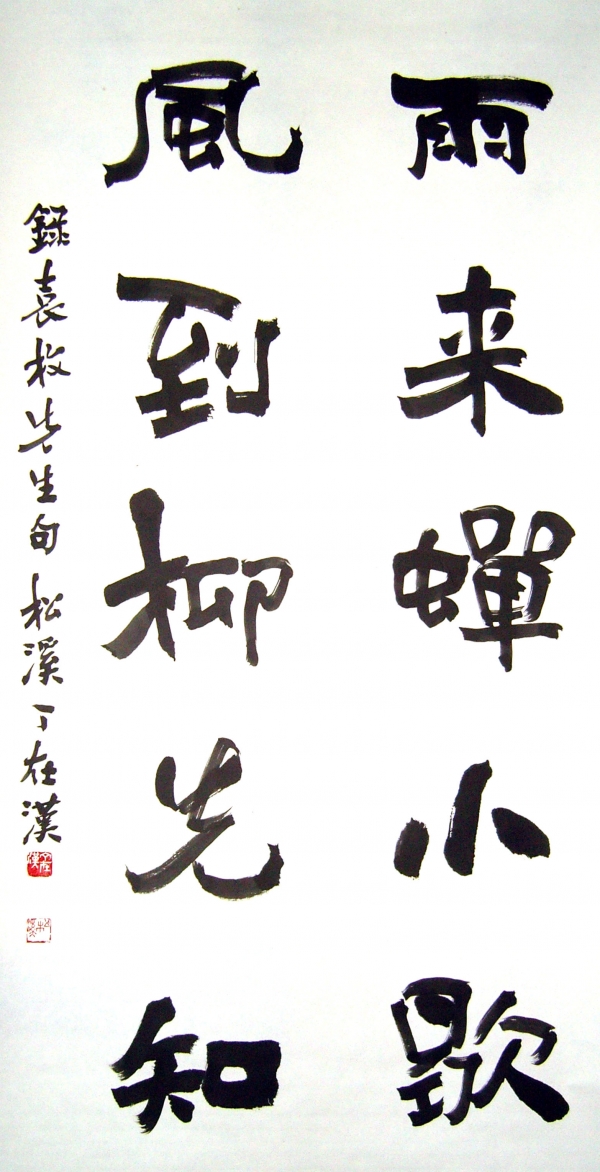 雨来蟬小歇
風到柳先知
録袁枚先生句 松溪丁在漢